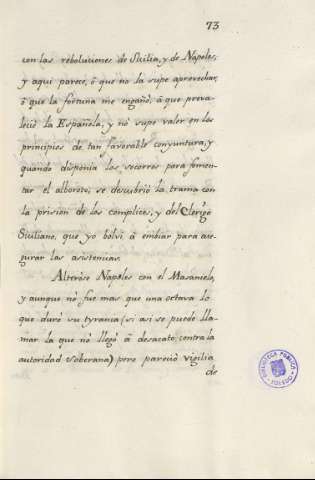 73
con las reboluciones de Sicilia, y de Napoles,
y aqui parece, ô que no la supe aprovechar,
ô que la fortuna me engañò, â que preva-
leciò la Española, y nò supe valer en los
principios de tan favorable conyuntura, y
quando disponia los socorros para fomen-
tar el alboroto, se descubriò la trama con
la prision de los complices, y del Clerigo
Siciliano, que yo bolvi â embiar para ase-
gurar las asistencias.
Alteròse Napoles con el Masanielo,
y aunque nò fue mas que una octava lo
que durò su tyrania (si asi se puede lla-
mar la que nò llegò â desacato contra la
autoridad Soberana) pero pareciò vigilia
de
BIBLIOTECA PUBLICA
TOLEDO